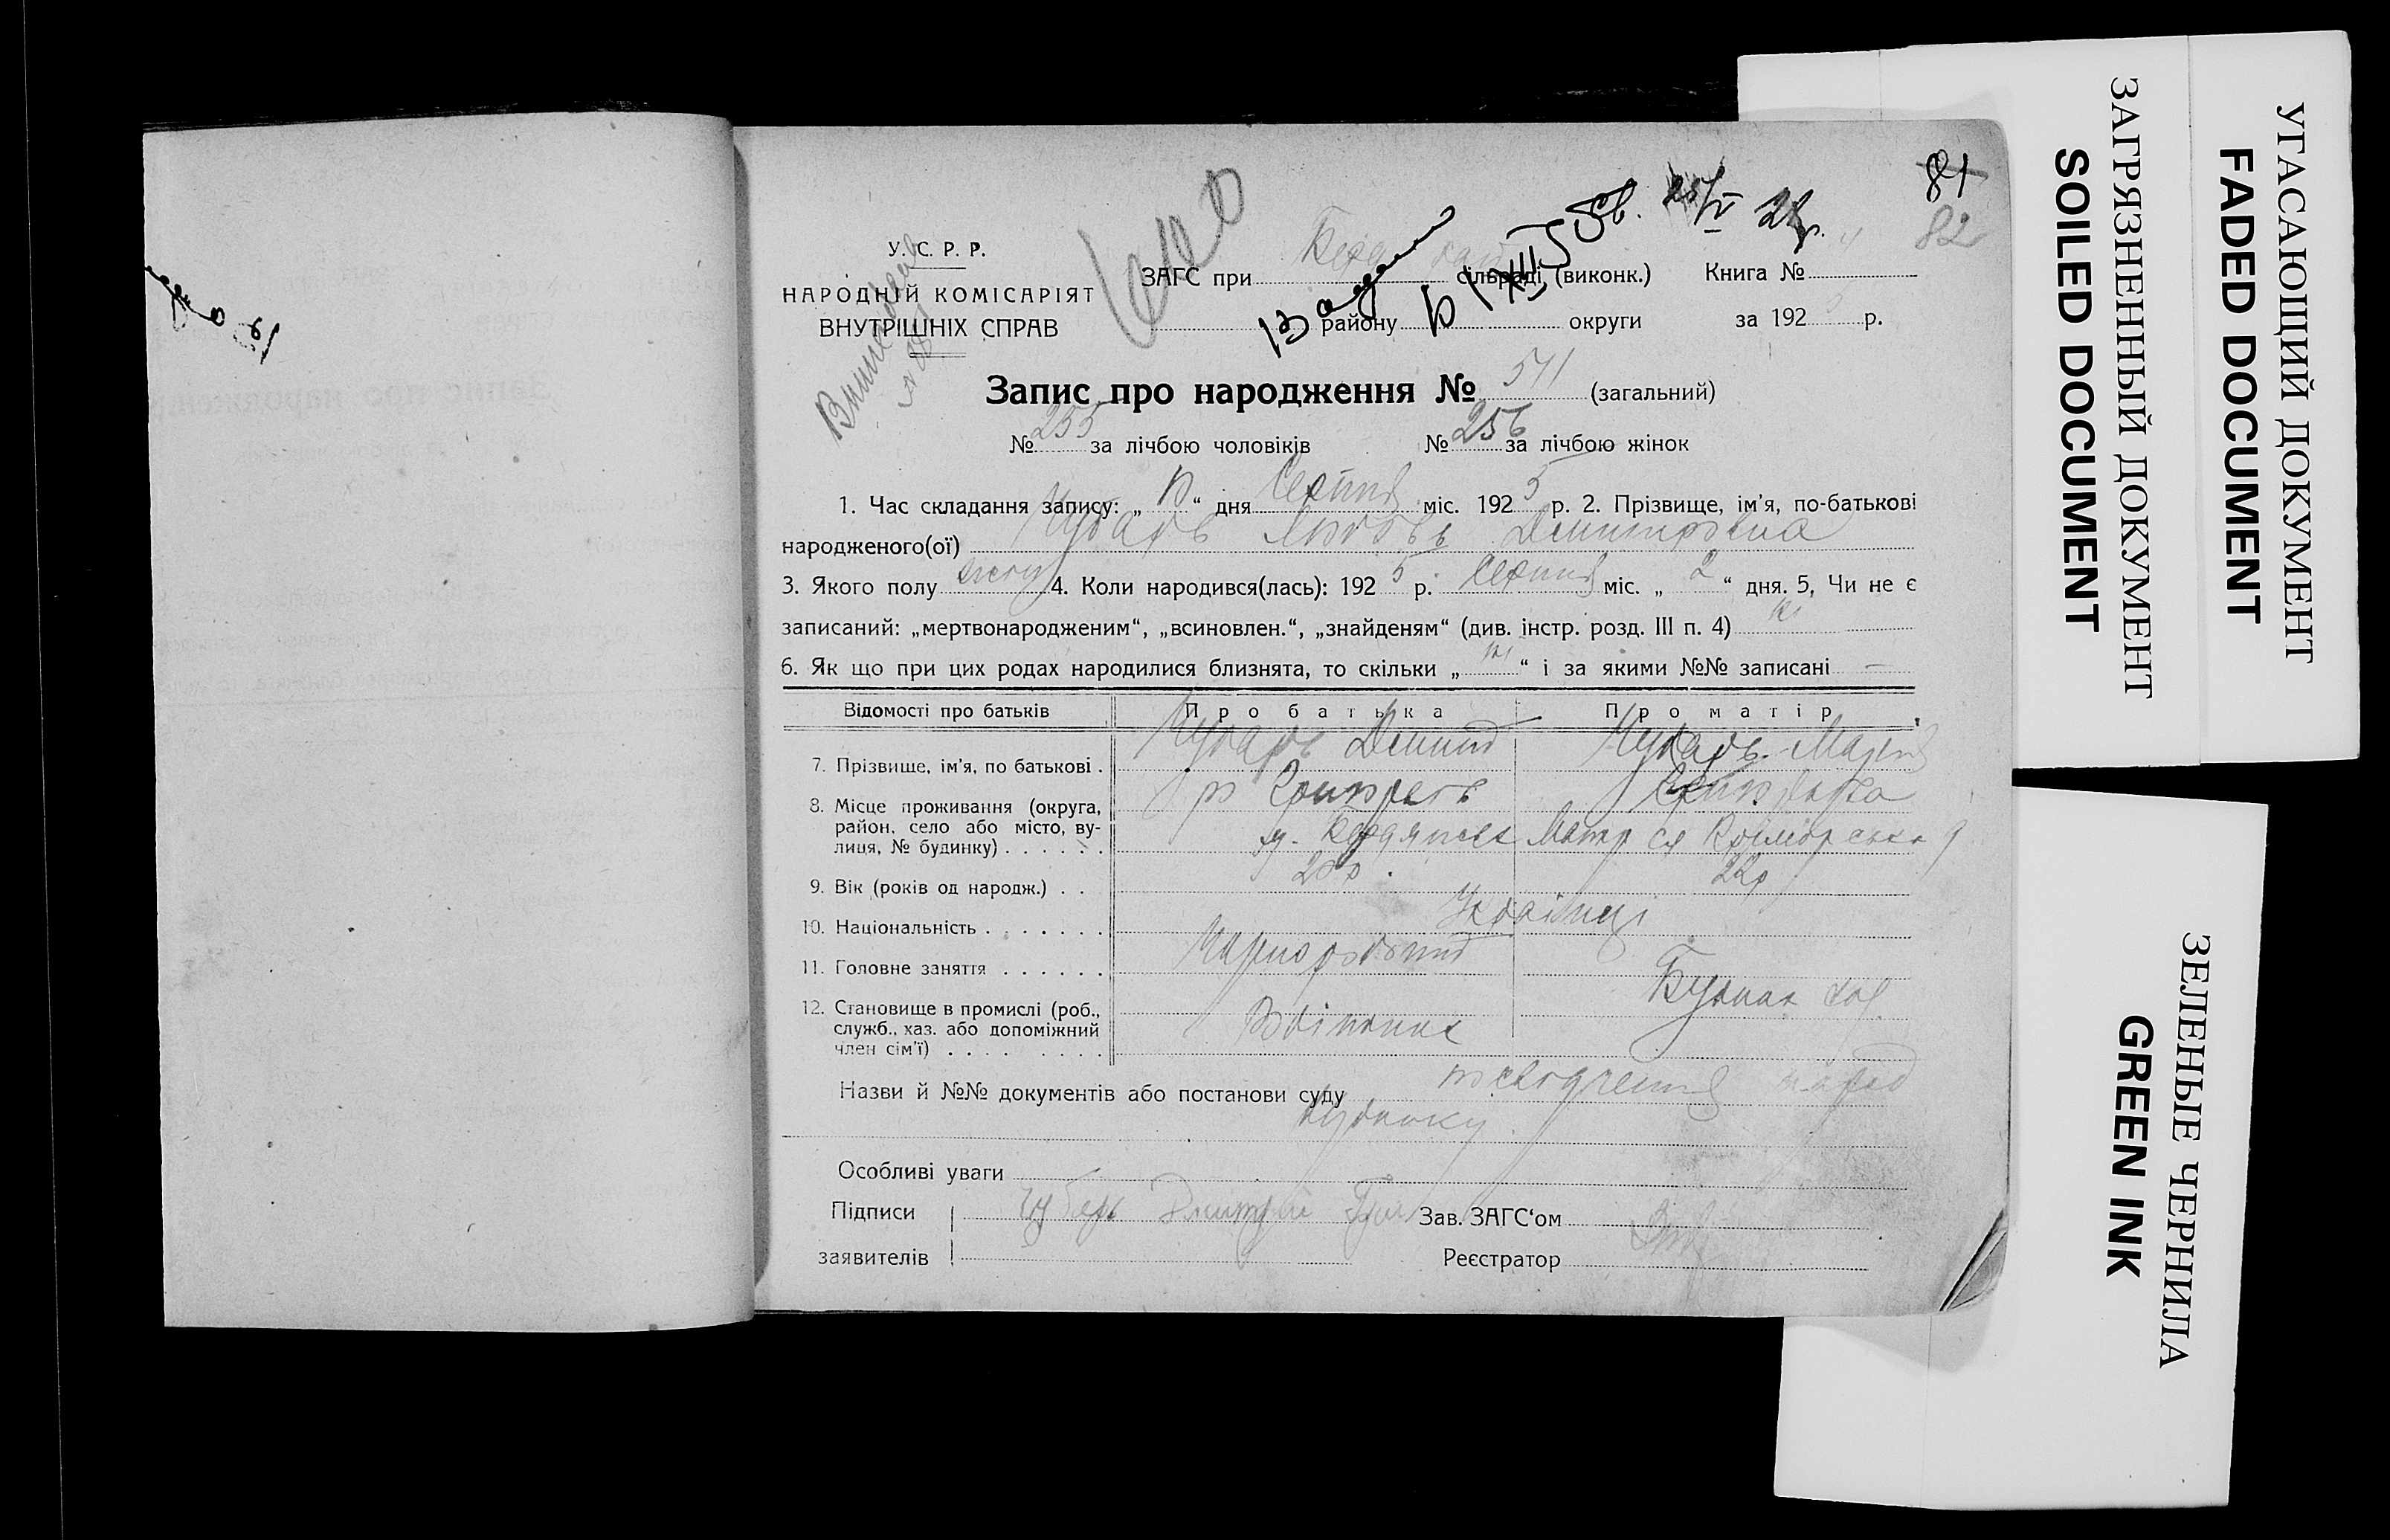 81
82
У. С. Р. Р.
НАРОДНІЙ КОМІСАРІЯТ
ВНУТРІШНІХ СПРАВ
ЗАГС при сільраді (виконк.) Книга №
району округи за 192 р.
Запис про народження № 511 (загальний)
№ 255 за лічбою чоловіків № 256 за лічбою жінок
1. Час складання запису: „ “ дня Серпня міс. 1925 р. 2. Прізвище, ім’я, по-батькові
народженого(ої) Чубарь Любовь Дмитровна
3. Якого полу 4. Коли народився(лась): 1925 р. Серпня міс. „2“ дня. 5, Чи не є
записаний: „мертвонародженим“, „всиновлен.“, „знайденям“ (див. інстр. розд. III п. 4) ні
6. Як що при цих родах народилися близнята, то скільки „ні“ і за якими №№ записані —
Відомості про батьків Про батька Про матір
7. Прізвище, ім’я, по батькові . Чубарь Дмит Чубарь Марія
8. Місце проживання (округа,
район, село або місто, ву-
лиця, № будинку) . . . . . . м. Бердянськ
9. Вік (років од народж.) . . 28р. 22р
10. Національність . . . . . . . Українці
11. Головне заняття . . . . . . Чорноробочий
12. Становище в промислі (роб.,
служб., хаз. або допоміжний
член сім’ї) . . . . . . . . Робітник
Назви й №№ документів або постанови суду посвідчення
будинку
Особливі уваги
Підписи Чубарь Дмитрий Зав. ЗАГС‘ом
заявителів Реєстратор
УГАСАЮЩИЙ ДОКУМЕНТ
FADED DOCUMENT
ЗАГРЯЗНЕННЫЙ ДОКУМЕНТ
SOILED DOCUMENT
ЗЕЛЕНЫЕ ЧЕРНИЛА
GREEN INK